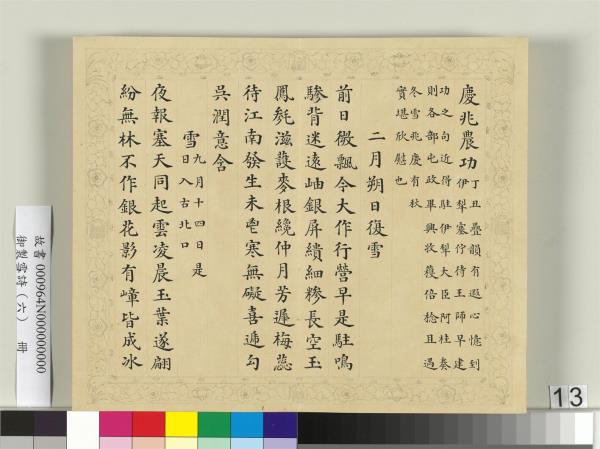 慶兆農功
丁丑疊韻有遐心憶到
伊犂塞佇待王師早建
功之句近得駐伊犂大臣阿桂奏
則各部屯政畢興收穫倍稔且過
冬雪兆慶有秋
實堪欣慰也
二月朔日復雪
前日微飄今大作行營早是駐鳴
驂背迷遠岫銀屏繢細糝長空玉
鳳毿滋護麥根纔仲月芳遲梅蕊
待江南發生未寒無礙喜遞勾
吳潤意含
雪
九月十四日是
日入古北口
夜報塞天同起雲凌晨玉葉遂翩
紛無林不作銀花影有嶂皆成冰
故書 000964N000000000
御製雪詩(六) 冊
13